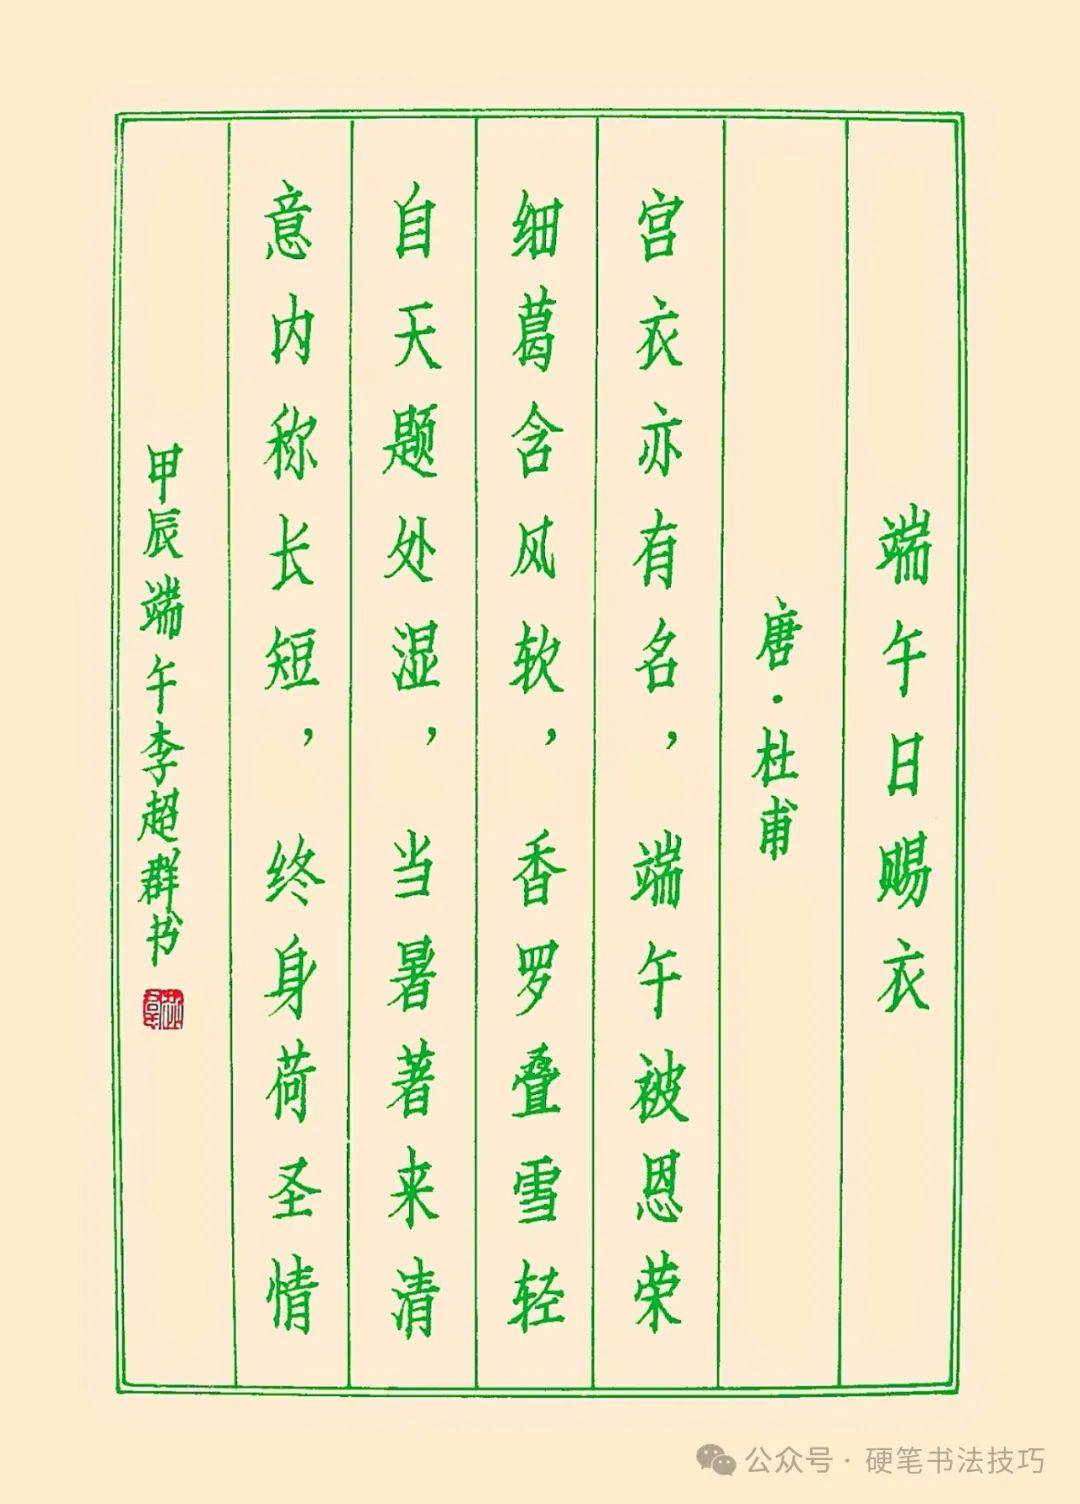 端午日赐衣
唐·杜甫
宫衣亦有名，端午被恩荣
细葛含风软，香罗叠雪轻
自天题处湿，当暑著来清
意内称长短，终身荷圣情
甲辰端午李超群书
公众号·硬笔书法技巧